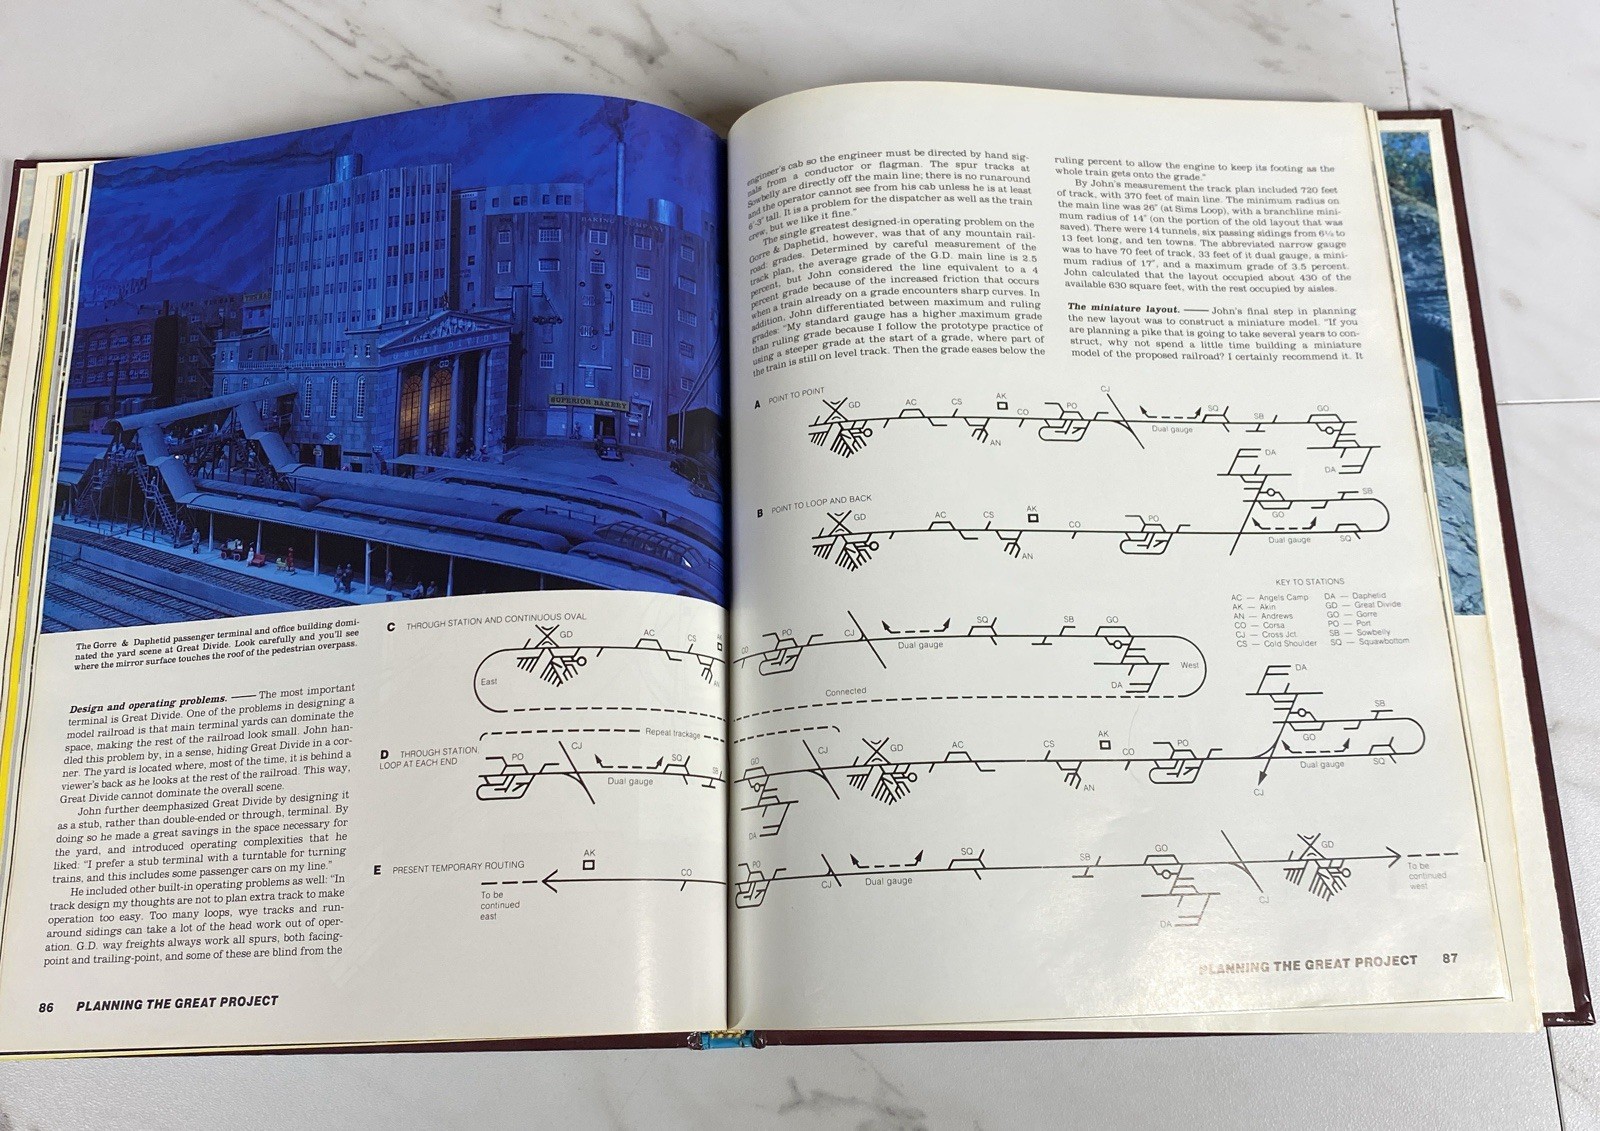 BAKING COMPANY
GREAT DIVIDE
SUPERIOR BAKERY
The Gorre & Daphetid passenger terminal and office building domi-
nated the yard scene at Great Divide. Look carefully and you'll see
where the mirror surface touches the roof of the pedestrian overpass.
Design and operating problems. — The most important
terminal is Great Divide. One of the problems in designing a
model railroad is that main terminal yards can dominate the
space, making the rest of the railroad look small. John han-
dled this problem by, in a sense, hiding Great Divide in a cor-
ner. The yard is located where, most of the time, it is behind a
viewer's back as he looks at the rest of the railroad. This way,
Great Divide cannot dominate the overall scene.
John further deemphasized Great Divide by designing it
as a stub, rather than double-ended or through, terminal. By
doing so he made a great savings in the space necessary for
the yard, and introduced operating complexities that he
liked: "I prefer a stub terminal with a turntable for turning
trains, and this includes some passenger cars on my line."
He included other built-in operating problems as well: "In
track design my thoughts are not to plan extra track to make
operation too easy. Too many loops, wye tracks and run-
around sidings can take a lot of the head work out of oper-
ation. G.D. way freights always work all spurs, both facing-
point and trailing-point, and some of these are blind from the
86 PLANNING THE GREAT PROJECT
engineer's cab so the engineer must be directed by hand sig-
nals from a conductor or flagman. The spur tracks at
Sowbelly are directly off the main line; there is no runaround
and the operator cannot see from his cab unless he is at least
6'-3" tall. It is a problem for the dispatcher as well as the train
crew, but we like it fine."
The single greatest designed-in operating problem on the
Gorre & Daphetid, however, was that of any mountain rail-
road: grades. Determined by careful measurement of the
track plan, the average grade of the G.D. main line is 2.5
percent, but John considered the line equivalent to a 4
percent grade because of the increased friction that occurs
when a train already on a grade encounters sharp curves. In
addition, John differentiated between maximum and ruling
grades: "My standard gauge has a higher maximum grade
than ruling grade because I follow the prototype practice of
using a steeper grade at the start of a grade, where part of
the train is still on level track. Then the grade eases below the
ruling percent to allow the engine to keep its footing as the
whole train gets onto the grade."
By John's measurement the track plan included 720 feet
of track, with 370 feet of main line. The minimum radius on
the main line was 26" (at Sims Loop), with a branchline mini-
mum radius of 14" (on the portion of the old layout that was
saved). There were 14 tunnels, six passing sidings from 6½ to
13 feet long, and ten towns. The abbreviated narrow gauge
was to have 70 feet of track, 33 feet of it dual gauge, a mini-
mum radius of 17", and a maximum grade of 3.5 percent.
John calculated that the layout occupied about 430 of the
available 630 square feet, with the rest occupied by aisles.
The miniature layout. — John's final step in planning
the new layout was to construct a miniature model. "If you
are planning a pike that is going to take several years to con-
struct, why not spend a little time building a miniature
model of the proposed railroad? I certainly recommend it. It
A POINT TO POINT
GD AC CS AK AN CO PO CJ Dual gauge SQ SB GO DA
B POINT TO LOOP AND BACK
GD AC CS AK AN CO PO DA GO SB Dual gauge SQ
KEY TO STATIONS
AC — Angels Camp
AK — Akin
AN — Andrews
CO — Corsa
CJ — Cross Jct.
CS — Cold Shoulder
DA — Daphetid
GD — Great Divide
GO — Gorre
PO — Port
SB — Sowbelly
SQ — Squawbottom
C THROUGH STATION AND CONTINUOUS OVAL
East GD AC CS AK AN CO PO CJ Dual gauge SQ SB GO DA West
Connected
D THROUGH STATION,
LOOP AT EACH END
Repeat trackage
PO CJ Dual gauge SQ SB GO DA CJ GD AC CS AK AN CO PO CJ DA GO SB Dual gauge SQ
E PRESENT TEMPORARY ROUTING
To be
continued
east
AK CO PO CJ Dual gauge SQ SB GO DA CJ GD
To be
continued
west
PLANNING THE GREAT PROJECT 87